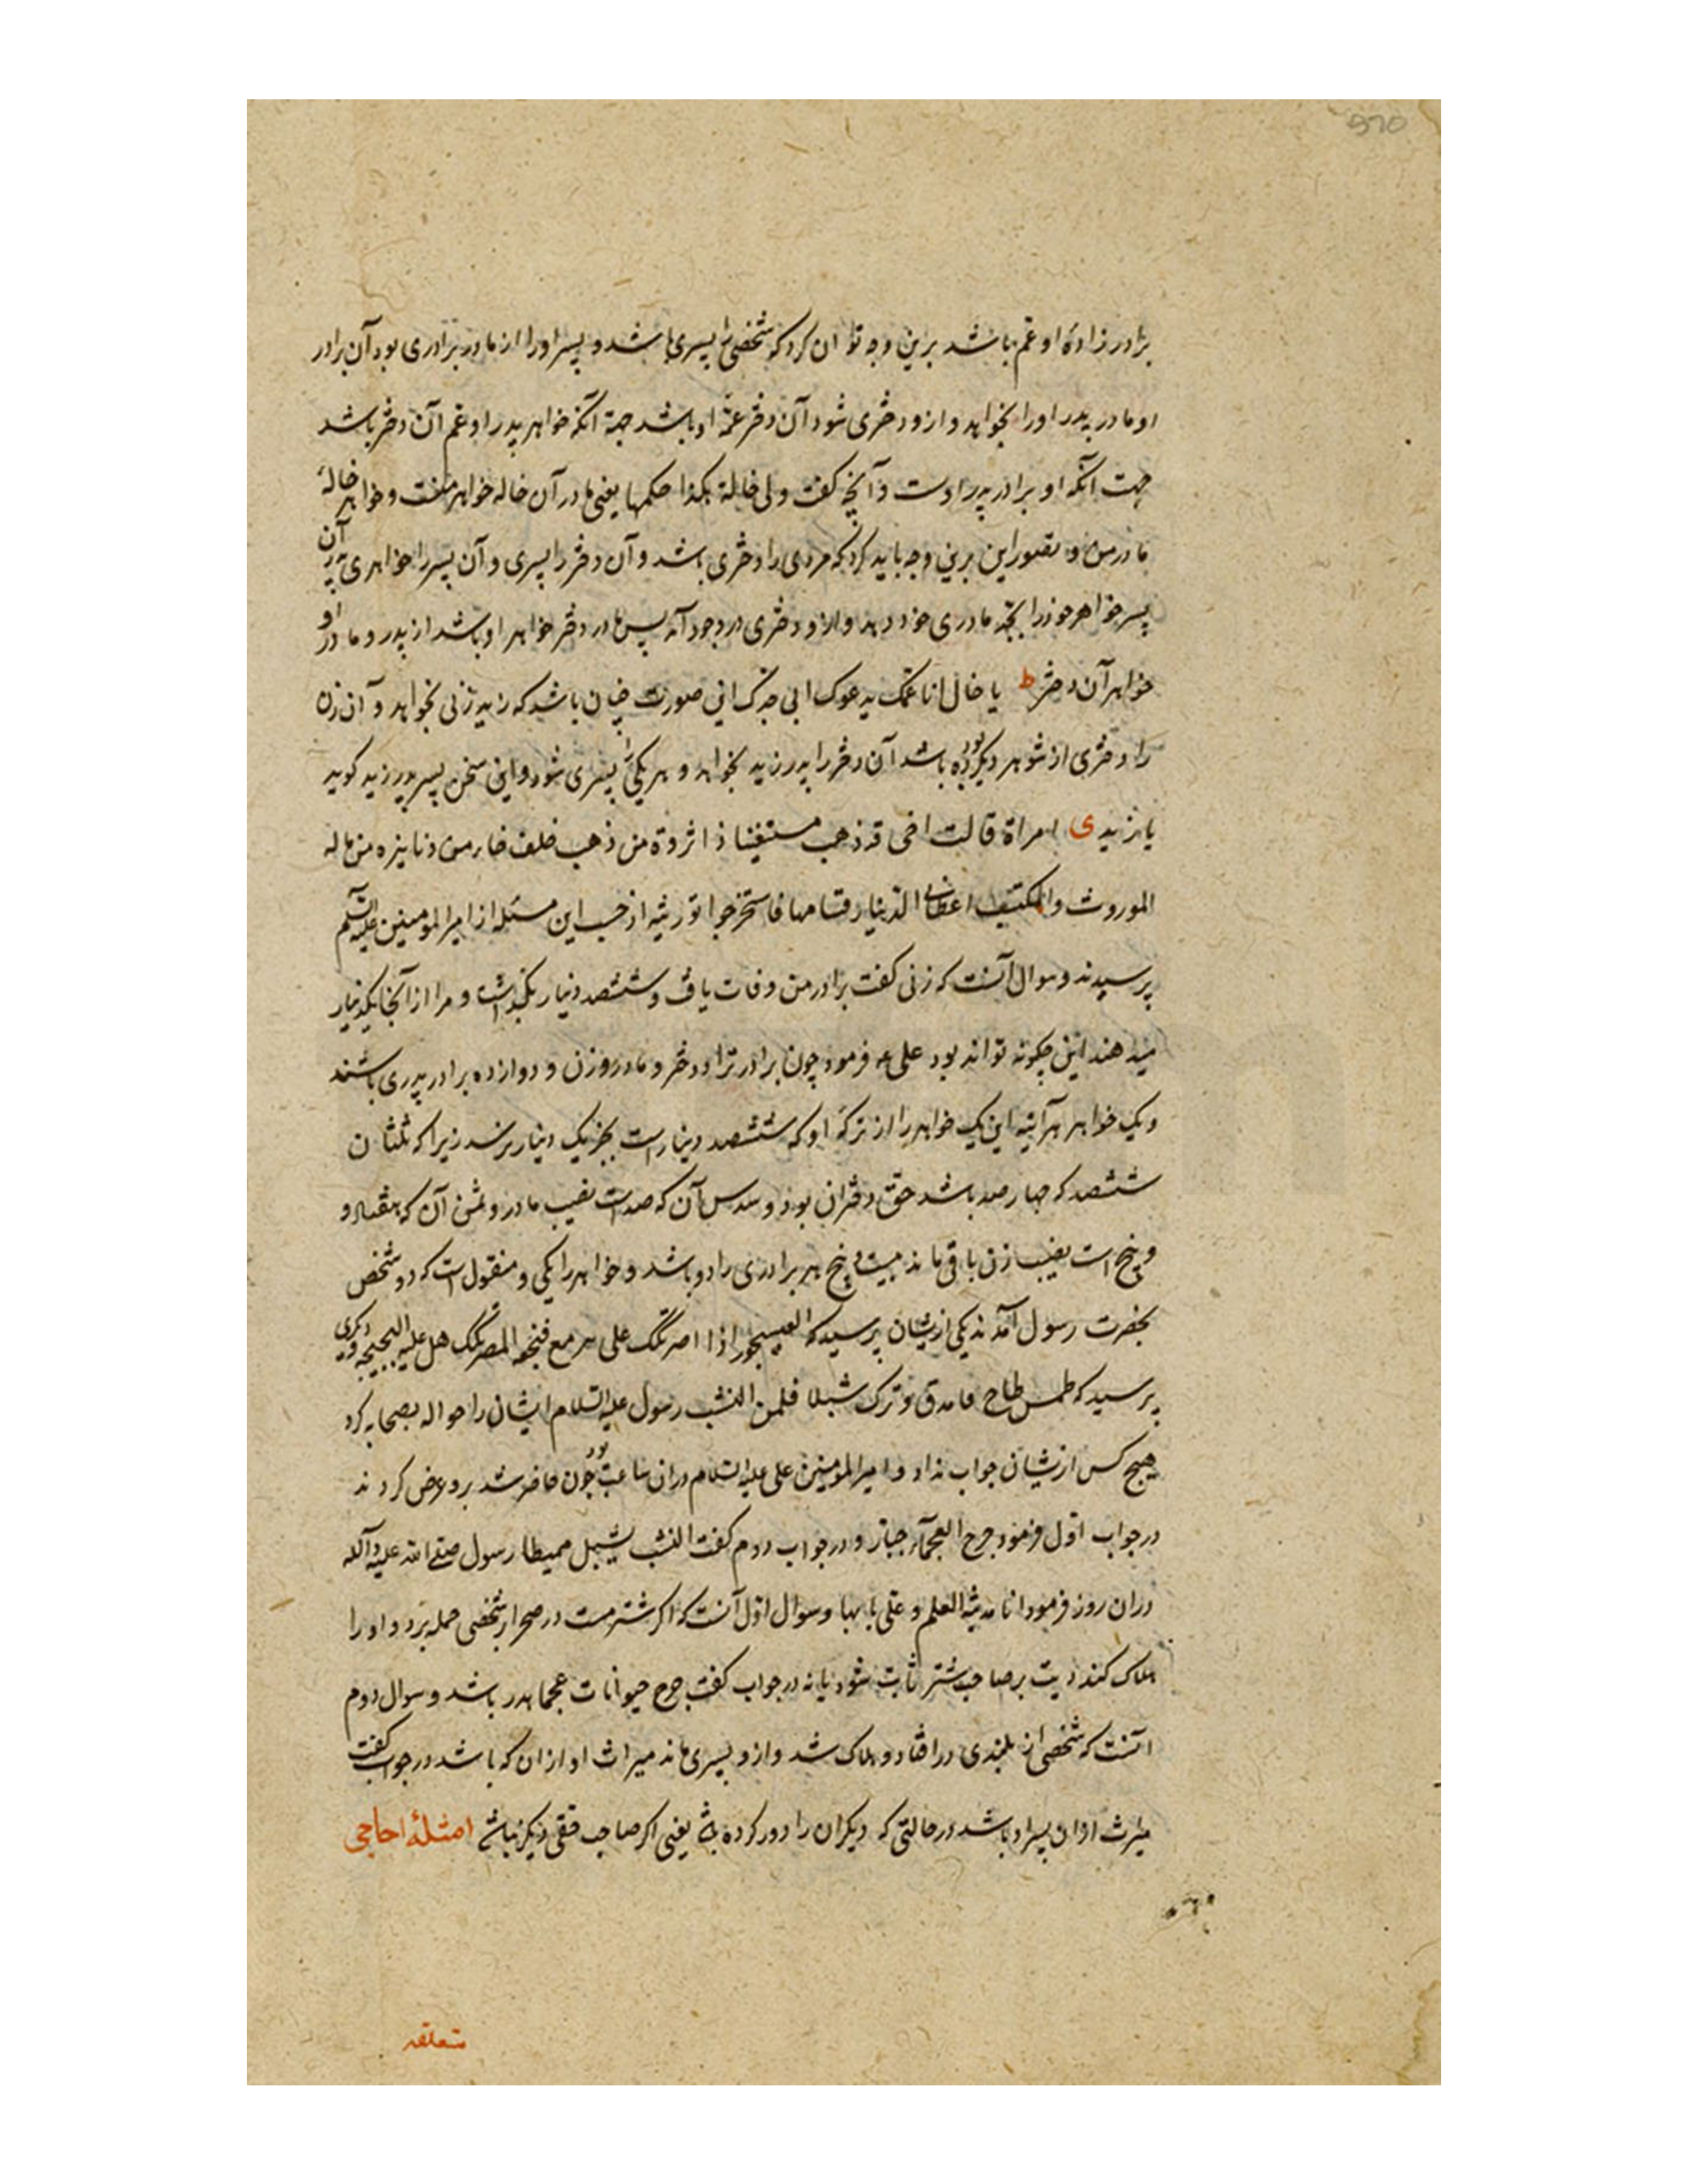 برادرزادهٔ او عم باشد برین وجه توان کرد که شخصی را پسری باشد و پسر او را از مادر برادری بود آن برادر
او مادر پدر او را بخواهد و ازو دختری شود آن دختر عمّهٔ او باشد جهة آنکه خواهر پدر او و عم آن دختر باشد
جهت آنکه او برادر پدر اوست و آنچه کفت ولی خالة هکذا حکمها یعنی مادر آن خاله خواهر منست و خواهر خالهٔ
مادر من و تصور این برین وجه باید کرد که مردی را دختری باشد و آن دختر را پسری و آن پسر را خواهری پدر آن
پسر خواهر خود را بجد مادری خود دهد و ازو دختری در وجود آمد پس مادر دختر خواهر او باشد از پدر و مادر او
خواهر آن دختر ط یا خال انا عمک یدعوک ابی جدک این صورت چنان باشد که زید زنی بخواهد و آن زن
را دختری از شوهر دیکر بوده باشد آن دختر را پدر زید بخواهد و هر یکی را پسری شود و این سخن پسر پدر زید کوید
با زیدی ی امراة قالت اخی قد ذهب مستغنیا ذا ثروة من ذهب خلف دنانیره من ماله
الموروث والمکتسب اعطانی الدینار قسامها فاستخرجوا توریثه از حسب این مسئله از امیرالمومنین علیه السلم
پرسیدند و سوال آنست که زنی کفت برادر من وفات یافت و ششصد دینار بکذاشت و مرا از آنجا یکدینار
میدهند این چکونه تواند بود علی عه فرمود چون برادر ترا دو دختر و مادر و زن و دوازده برادر پدری باشند
و یک خواهر هر آینه این یک خواهر را از ترکهٔ او که ششصد دینارست بجز یک دینار نرسد زیرا که ثلثان
ششصد که چهارصد باشد حق دختران بود و سدس آن که صدست نصیب مادر و ثمن آن که هفتاد و
و پنج است نصیب زن باقی ماند بیست و پنج هر برادری را دو باشد و خواهر را یکی و منقول است که دو شخص
بحضرت رسول آمدند یکی ازیشان پرسید که اذا علی هل علیه و دیکری
پرسید که طمس طاح و ترک شبلا فلمن النشب رسول علیه السلام ایشان را حواله بصحابه کرد
هیچ کس ازیشان جواب نداد و امیرالمومنین علی علیه السلام دران ساعت نبود چون حاضر شد برو عرض کردند
در جواب اوّل فرمود جرح العجمآء جبار و در جواب دوم کفت النشب للشبل ممیطا رسول صلی الله علیه و آله
دران روز فرمود انا مدینة العلم و علی بابها و سوال اوّل آنست که اکر شتر مست در صحرا بر شخصی حمله برد و او را
هلاک کند دیت بر صاحب شتر ثابت شود یا نه در جواب کفت جرح حیوانات عجما هدر باشد و سوال دوم
آنست که شخصی از بلندی در افتاد و هلاک شد و ازو پسری ماند میراث او ازان که باشد در جواب کفت
میراث ازان پسر او باشد در حالتی که دیکران را دور کرده باشد یعنی اکر صاحب حقی دیکر نباشد امثلهٔ احاجی
متعلقه